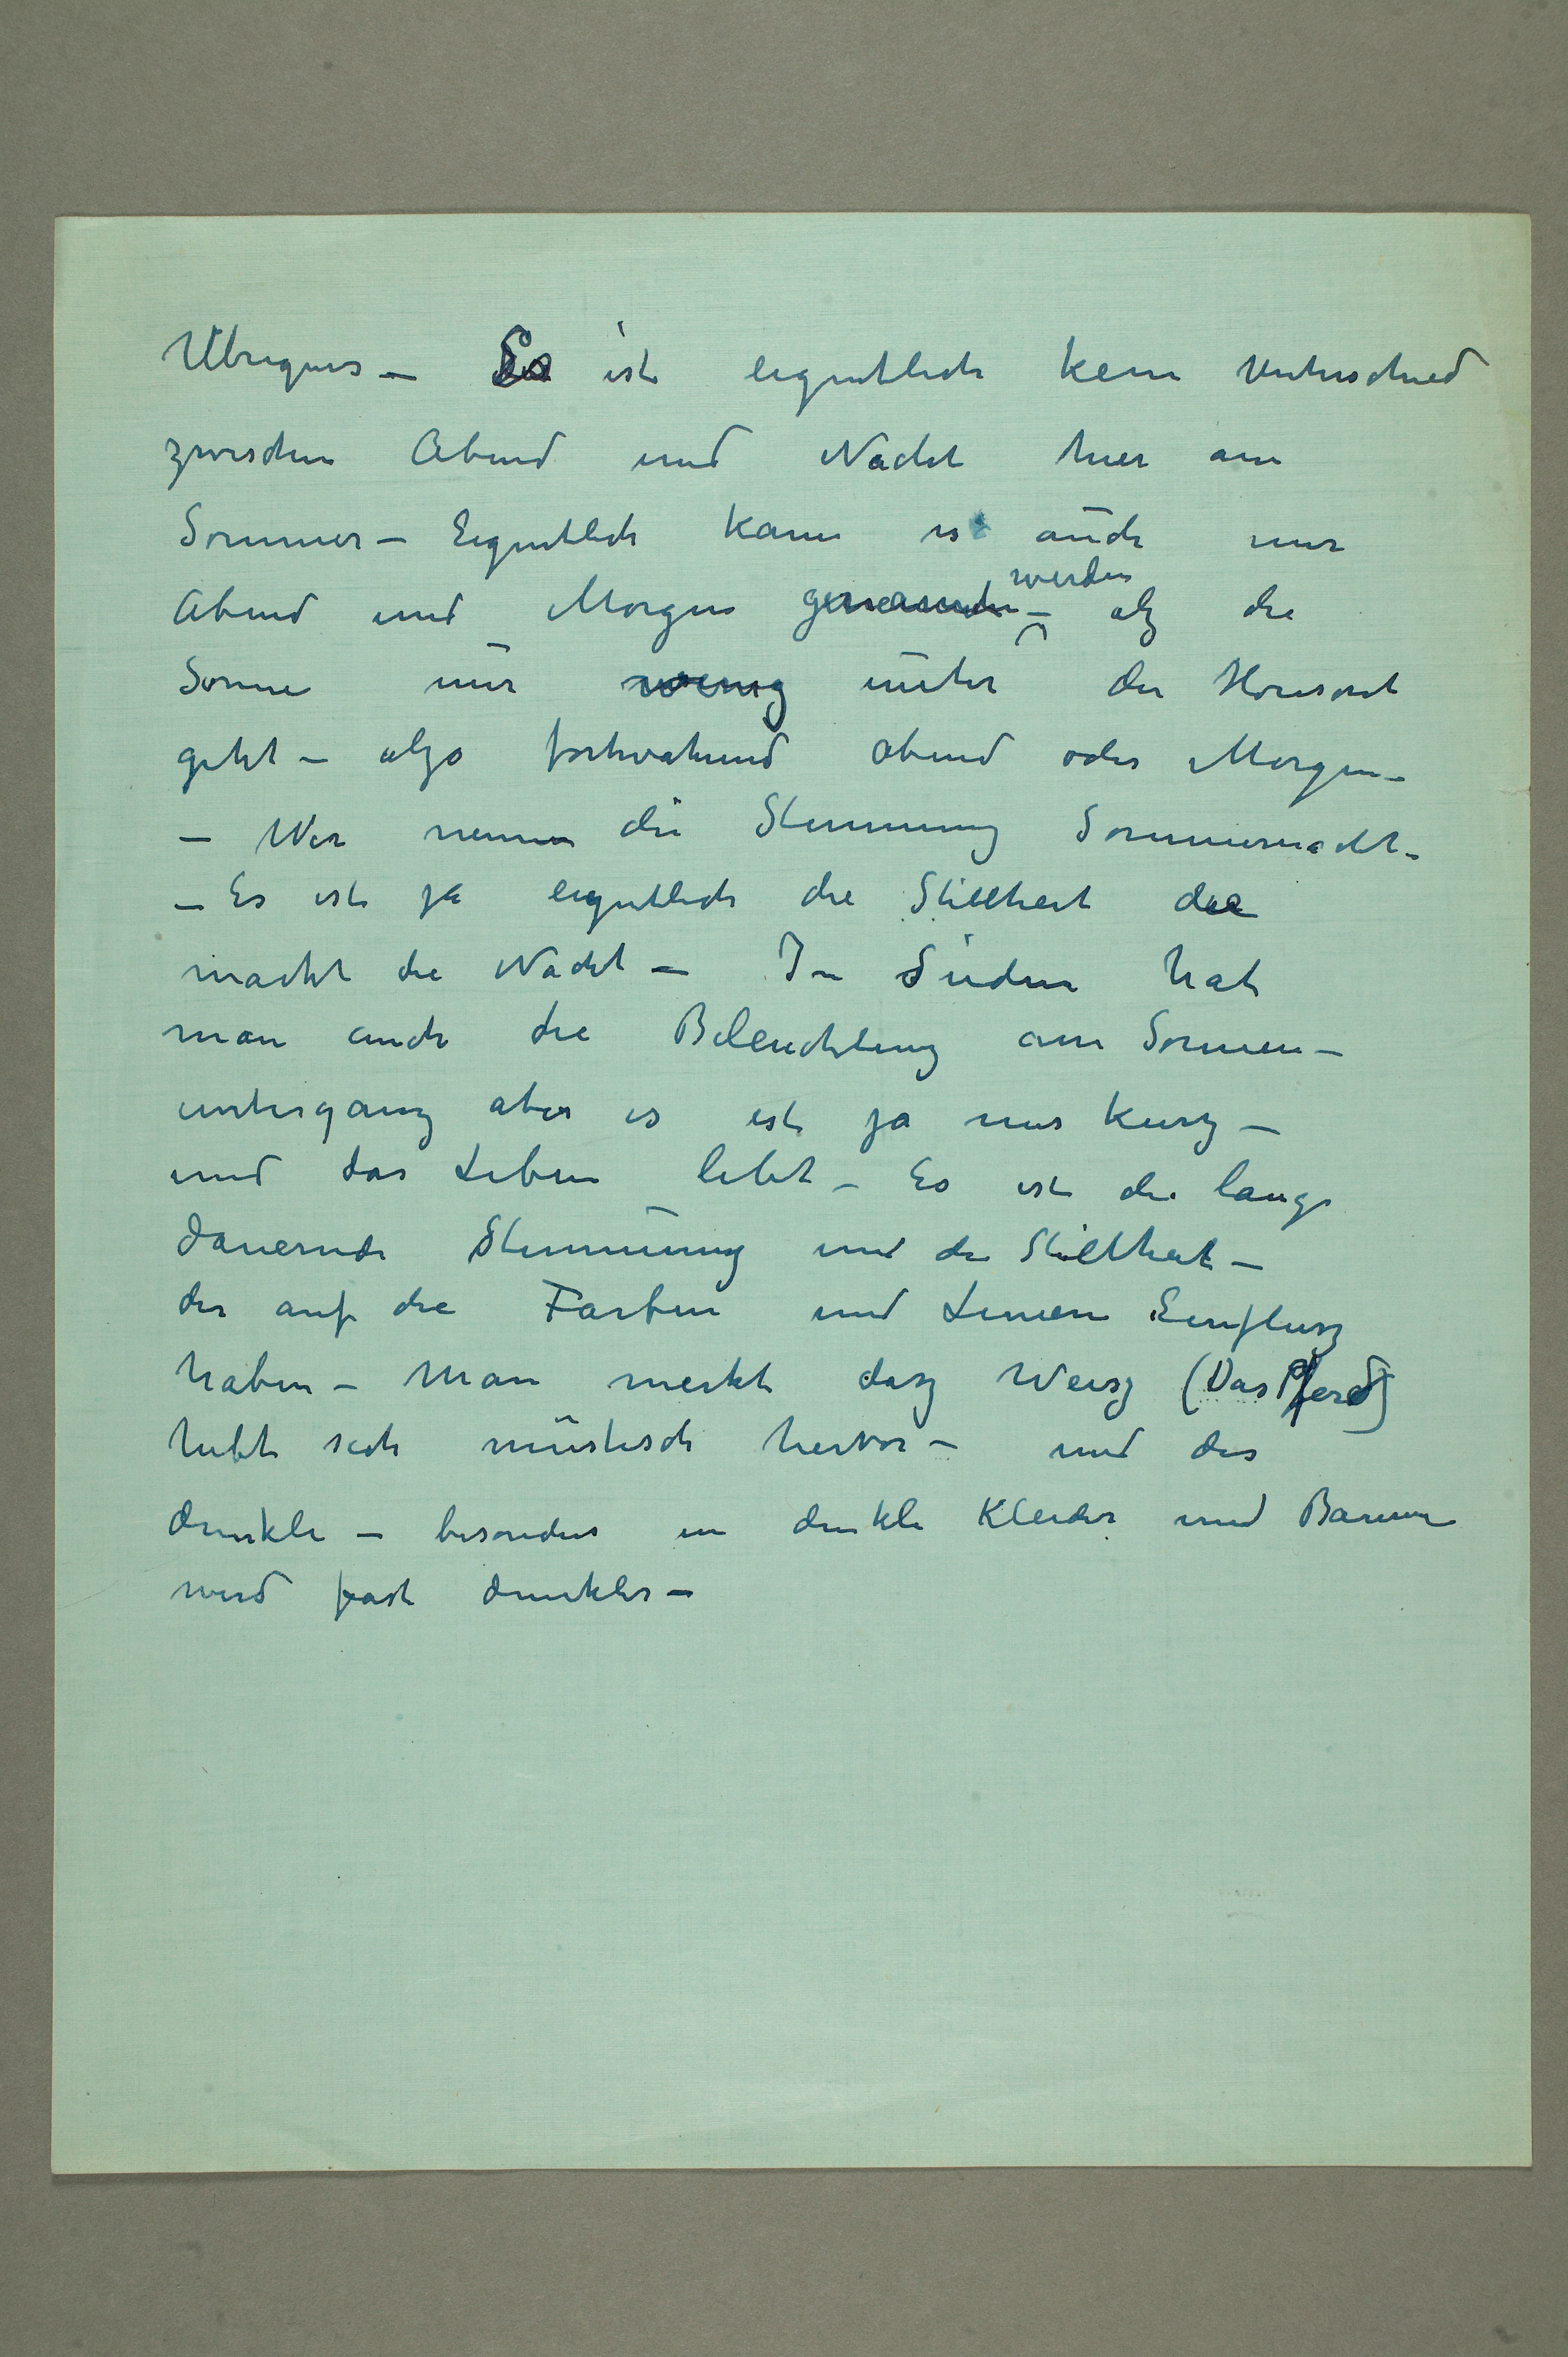 Übrigens – Es ist eigentlich kein Unterschied
zwischen Abend und Nacht hier am
Sommer – Eigentlich kann es auch nur
Abend und Morgen genannt werden – alz die
Sonne nur wenig unter den Horisont
geht – alzo fortwährend Abend oder Morgen –
– Wir nennen die Stimmung Sommernacht –
– Es ist ja eigentlich die Stillheit die
macht die Nacht – In Süden hat
man auch die Beleuchtung am Sonnen-
untergang aber es ist ja nur kurz –
und das Leben lebt – Es ist die lange
dauernde Stimmung und die Stillheit –
der auf die Farben und Linien Einflusz
haben – Man merkt dasz Weisz (Das Pferd)
hebt sich müstisch hervor – und das
dunkle – besonders in dunkle Kleider und Baume
wird fast dunkler –